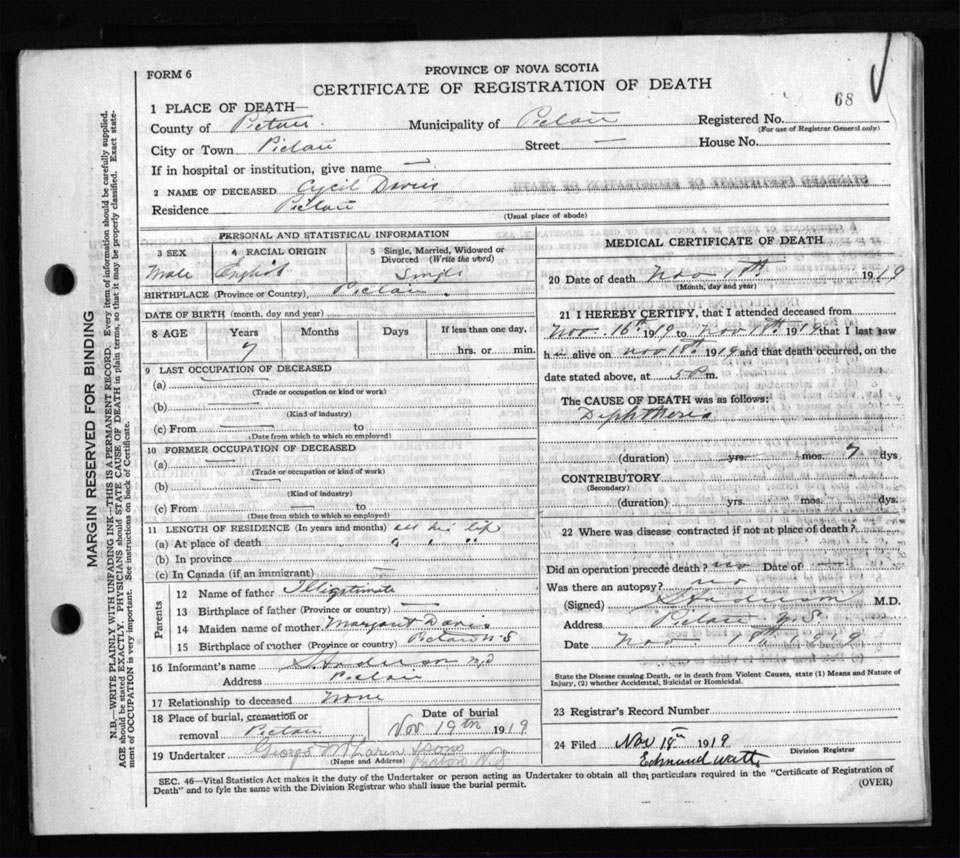 FORM 6
PROVINCE OF NOVA SCOTIA
CERTIFICATE OF REGISTRATION OF DEATH
68
1 PLACE OF DEATH—
County of Pictou. Municipality of Pictou Registered No.
(For use of Registrar General only)
City or Town Pictou Street — House No.
If in hospital or institution, give name —
2 NAME OF DECEASED Cycil Davis
Residence Pictou
(Usual place of abode)
PERSONAL AND STATISTICAL INFORMATION
3 SEX 4 RACIAL ORIGIN 5 Single, Married, Widowed or Divorced (Write the word)
Male English Single
BIRTHPLACE (Province or Country) Pictou.
DATE OF BIRTH (month, day and year)
8 AGE Years Months Days If less than one day,
7 hrs. or min.
9 LAST OCCUPATION OF DECEASED
(a) —
(Trade or occupation or kind or work)
(b) —
(Kind of industry)
(c) From — to
(Date from which to which so employed)
10 FORMER OCCUPATION OF DECEASED
(a) —
(Trade or occupation or kind of work)
(b) —
(Kind of industry)
(c) From — to
(Date from which to which so employed)
11 LENGTH OF RESIDENCE (In years and months) all his life
(a) At place of death " " "
(b) In province
(c) In Canada (if an immigrant) —
Parents
12 Name of father Illigitimate
13 Birthplace of father (Province or country) —
14 Maiden name of mother Margaret
15 Birthplace of mother (Province or country) Pictou N.S
16 Informant's name S Anderson MD
Address Pictou
17 Relationship to deceased None
18 Place of burial, cremation or removal Pictou. Date of burial Nov 19th 1919
19 Undertaker George & Sons
(Name and Address) Pictou N.S
MEDICAL CERTIFICATE OF DEATH
20 Date of death Nov 18th 1919
(Month, day and year)
21 I HEREBY CERTIFY, that I attended deceased from
Nov. 16th 1919 to Nov 18th 1919 that I last saw
him alive on Nov 18th 1919 and that death occurred, on the
date stated above, at 5 P m.
The CAUSE OF DEATH was as follows:
Diphtheria
(duration) yrs. mos. 7 dys
CONTRIBUTORY
(Secondary)
(duration) yrs. mos. dys.
22 Where was disease contracted if not at place of death?
Did an operation precede death? no Date of —
Was there an autopsy? no
(Signed) S Anderson M.D.
Address Pictou N.S
Date Nov. 18th 1919
State the Disease causing Death, or in death from Violent Causes, state (1) Means and Nature of
Injury, (2) whether Accidental, Suicidal or Homicidal.
23 Registrar's Record Number
24 Filed Nov 18th 1919
Division Registrar
Edmund Watts
SEC. 46—Vital Statistics Act makes it the duty of the Undertaker or person acting as Undertaker to obtain all the particulars required in the "Certificate of Registration of
Death" and to fyle the same with the Division Registrar who shall issue the burial permit.
(OVER)
MARGIN RESERVED FOR BINDING
N.B.—WRITE PLAINLY WITH UNFADING INK—THIS IS A PERMANENT RECORD. Every item of information should be carefully supplied.
AGE should be stated EXACTLY. PHYSICIANS should STATE CAUSE OF DEATH in plain terms, so that it may be properly classified. Exact state-
ment of OCCUPATION is very important. See instructions on back of Certificate.